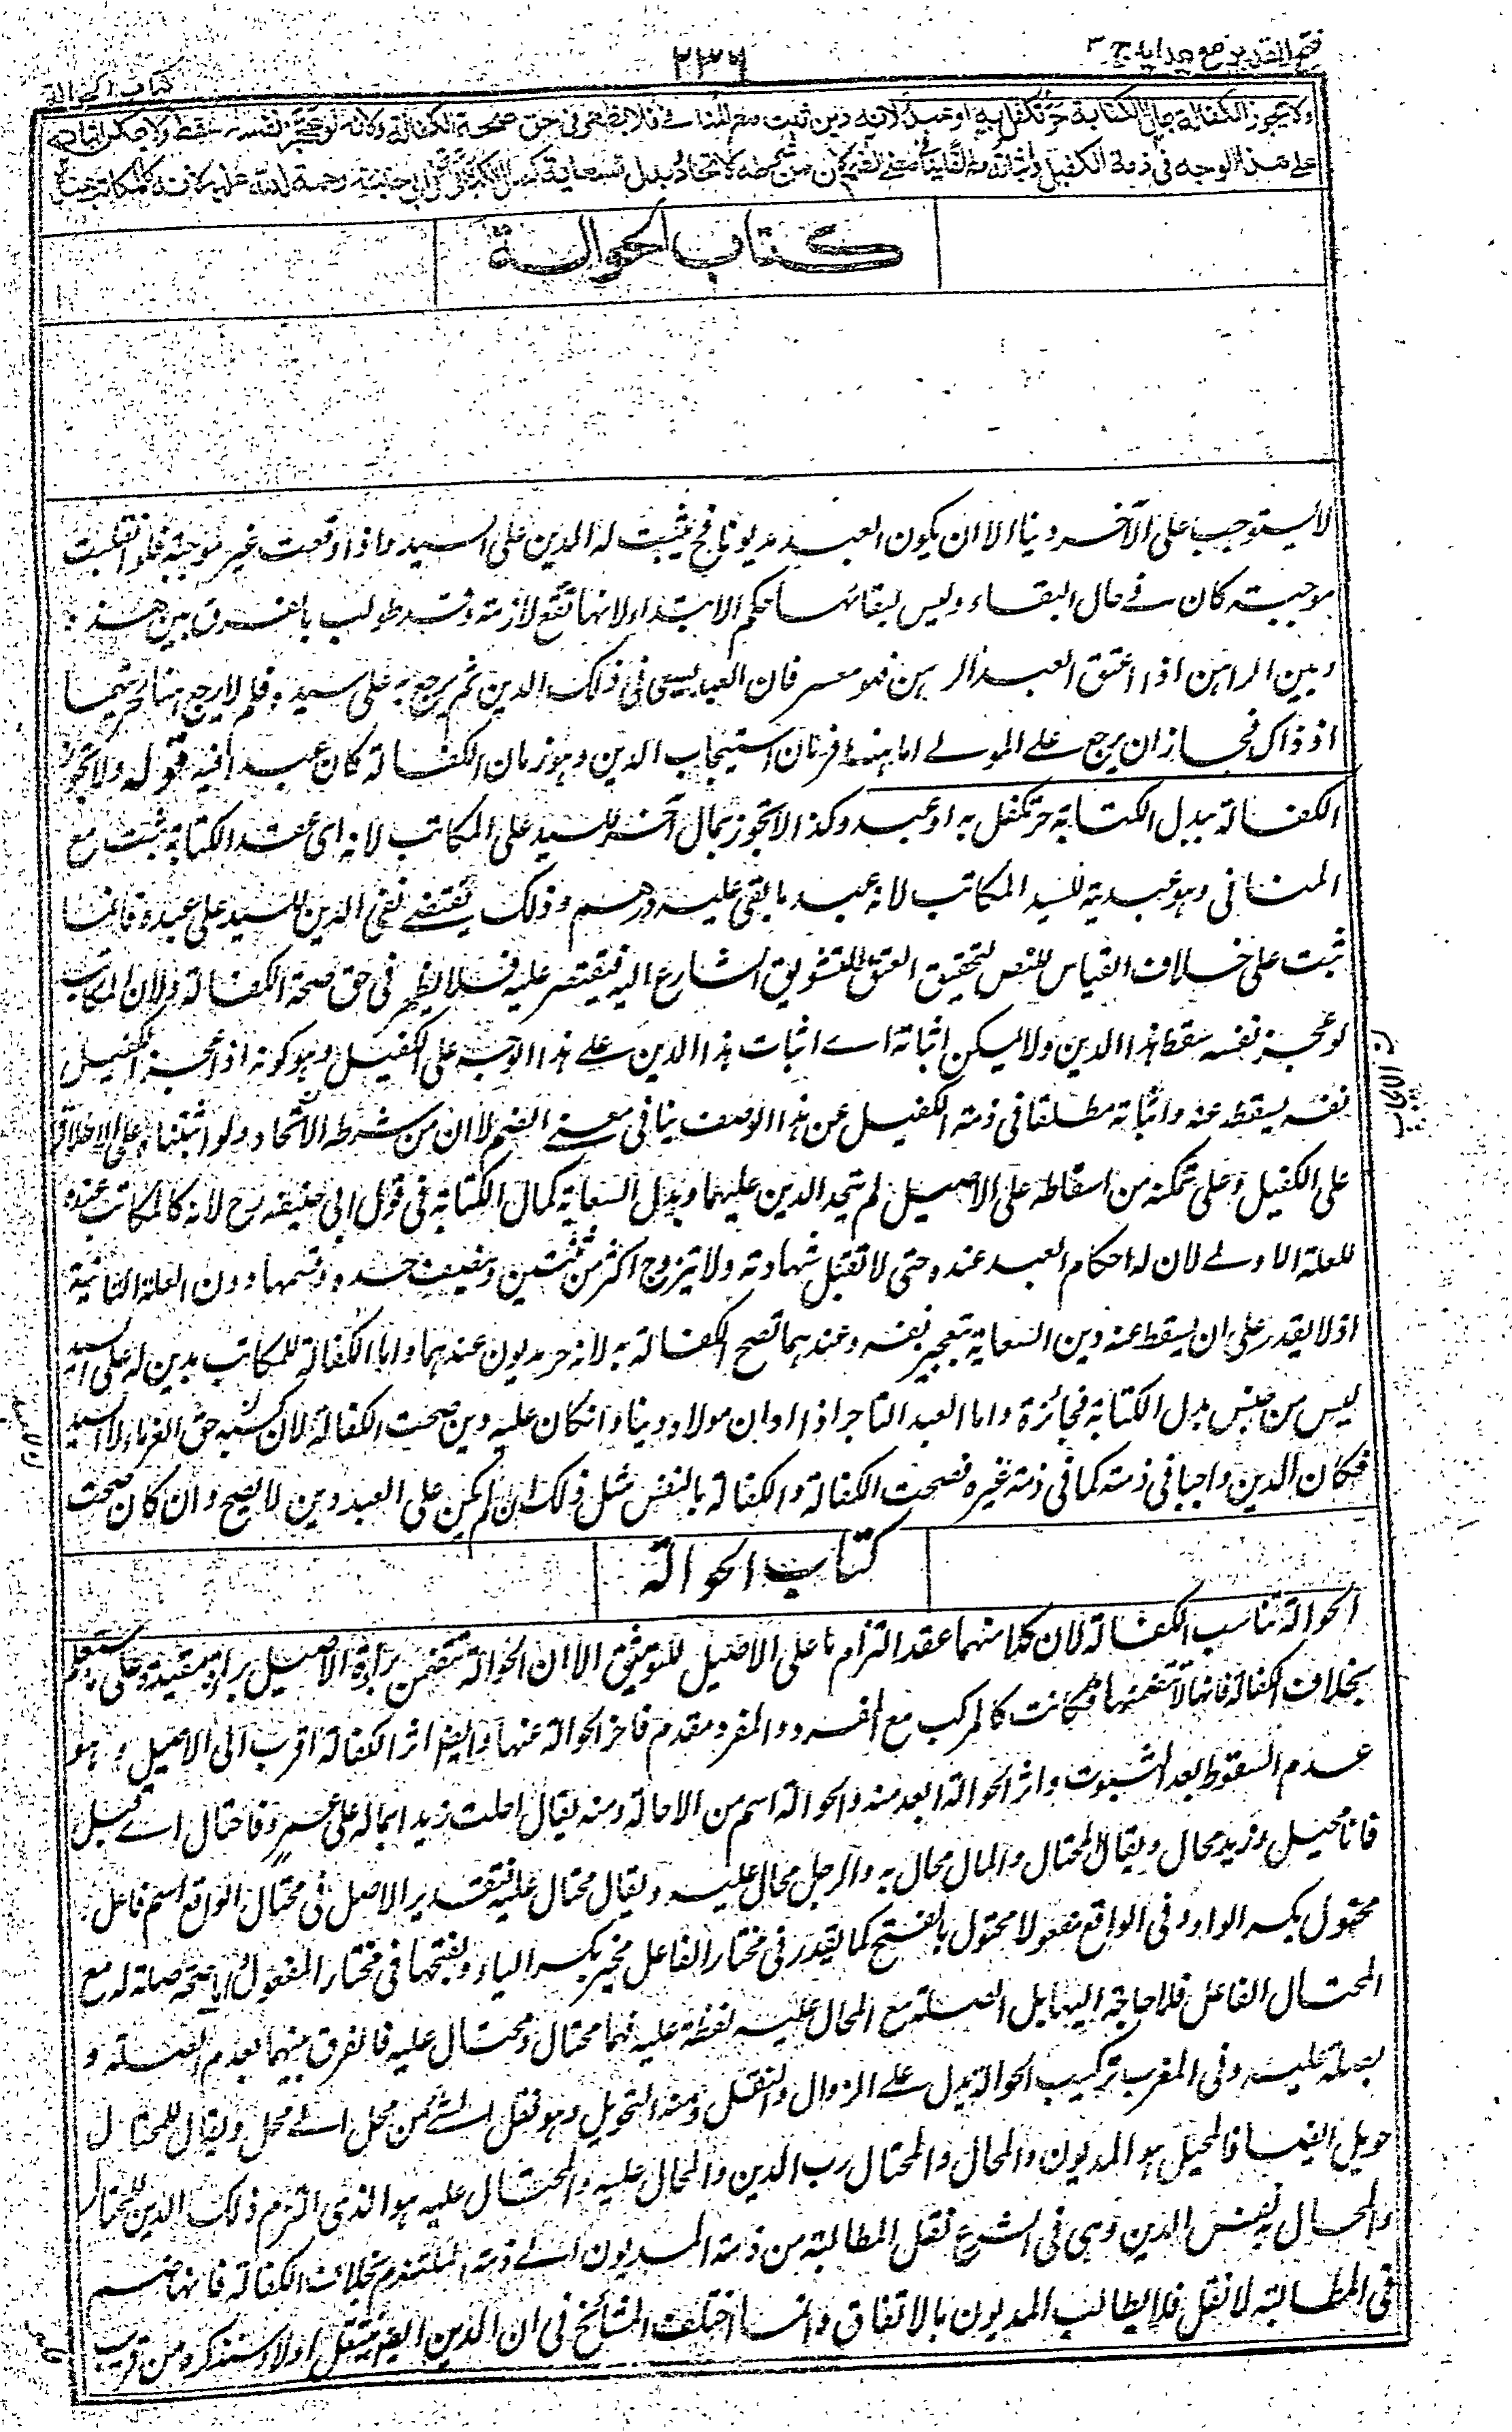 فتح القدير مع هدايه ج ٣
٢٣٦
كتاب الحوالة
ولا تجوز الكفالة بمال الكتابة حر تكفل به او عبد لانه دين ثبت مع المنافي فلا يظهر في حق صحة الكفالة ولانه لو عجز نفسه سقط ولا يمكن اثباته
على هذا الوجه في ذمة الكفيل واثباته مطلقا ينافي معنى الضم لان من شرطه الاتحاد وبدل السعاية كمال الكتابة في قول ابي حنيفة رحمة الله عليه لانه كالمكاتب عنده
كتاب الحوالة
لا يستوجب على الآخر دينا الا ان يكون العبد مديونا فح يثبت له الدين على السيد واذا وقعت غير موجبة فلو انقلبت
موجبة كان في حال البقاء وليس لبقائها حكم الابتداء لانها تقع لازمة وقد طولب بالفرق بين هذه
وبين الراهن اذا اعتق العبد الرهين وهو معسر فان العبد يسعى في ذلك الدين ثم يرجع به على سيده فلم لا يرجع هنا لحريتهما
اذ ذاك فجاز ان يرجع على المولى اما هنا فزمان استيجاب الدين وهو زمان الكفالة كان عبدا فيه قوله ولا تجوز
الكفالة ببدل الكتابة حر تكفل به او عبد وكذا لا تجوز بمال آخر للسيد على المكاتب لانه اى عقد الكتابة ثبت مع
المنافي وهو عبدية للسيد المكاتب لانه عبد ما بقى عليه درهم وذلك يقتضى نفى الدين للسيد على عبده وانما
ثبت على خلاف القياس للنص لتحقيق العتق لتشوق الشارع اليه فيقتصر عليه فلا يظهر في حق صحة الكفالة ولان المكاتب
لو عجز نفسه سقط هذا الدين ولا يمكن اثباته اى اثبات هذا الدين على هذا الوجه على الكفيل وهو كونه اذا عجز الكفيل
نفسه يسقط عنه واثباته مطلقا في ذمة الكفيل عن هذا الوصف ينافي معنى الضم لان من شرطه الاتحاد ولو اثبتناه على الاطلاق
على الكفيل وعلى تمكنه من اسقاطه على الاصيل لم يتحد الدين عليهما وبدل السعاية كمال الكتابة في قول ابى حنيفة رح لانه كالمكاتب عنده
للعلة الاولى لان له احكام العبد عنده حتى لا تقبل شهادته ولا يتزوج اكثر من ثنتين وتنصيف حده وقسمها دون العلة الثانية
اذ لا يقدر على ان يسقط عنه دين السعاية بتعجيز نفسه وعندهما تصح الكفالة به لانه حر مديون عندهما واما الكفالة للمكاتب بدين له على السيد
ليس من جنس بدل الكتابة فجائزة واما العبد التاجر اذا ادان مولاه دينا وان كان عليه دين صحت الكفالة لان كسبه حق الغرماء لا السيد
فكان الدين واجبا في ذمته كما في ذمة غيره فصحت الكفالة والكفالة بالنفس مثل ذلك ان لم يكن على العبد دين لا يصح وان كان صحت
كتاب الحوالة
الحوالة تناسب الكفالة لان كلا منهما عقد التزام ما على الاصيل للتوثق الا ان الحوالة تتضمن براءة الاصيل براءة مقيدة على ما سيعلم
بخلاف الكفالة فانها لا تتضمنها فكانت كالمركب مع المفرد والمفرد مقدم فاخر الحوالة عنها وايضا اثر الكفالة اقرب الى الاصيل وهو
عدم السقوط بعد الثبوت واثر الحوالة ابعد منه والحوالة اسم من الاحالة ومنه يقال احلت زيدا بما له على عمرو فاحتال اى قبل
فانا محيل وزيد محال ويقال المحتال والمال محال به والرجل محال عليه ويقال محتال عليه فتقدير الاصل في محتال الواقع اسم فاعل
محتول بكسر الواو وفي الواقع مفعولا محتول بالفتح كما يقدر في مختار الفاعل مختير بكسر الياء وبفتحها في مختار المفعول واما صلة له مع
المحتال الفاعل فلا حاجة اليها بل الصلة مع المحال عليه لفظة عليه فهما محتال ومحتال عليه فالفرق بينهما بعدم الصلة و
بصلة عليه وفي المغرب تركيب الحوالة يدل على الزوال والنقل ومنه التحويل وهو نقل الشئ من محل الى محل ويقال للمحتال
حويل ايضا فالمحيل هو المديون والمحال والمحتال رب الدين والمحال عليه والمحتال عليه هو الذى التزم ذلك الدين للمحتال
والمحال به نفس الدين وهى في الشرع نقل المطالبة من ذمة المديون الى ذمة الملتزم بخلاف الكفالة فانها ضم
في المطالبة لا نقل فلا يطالب المديون بالاتفاق وانما اختلف المشائخ في ان الدين ايضا ينتقل اولا وسنذكره من قريب